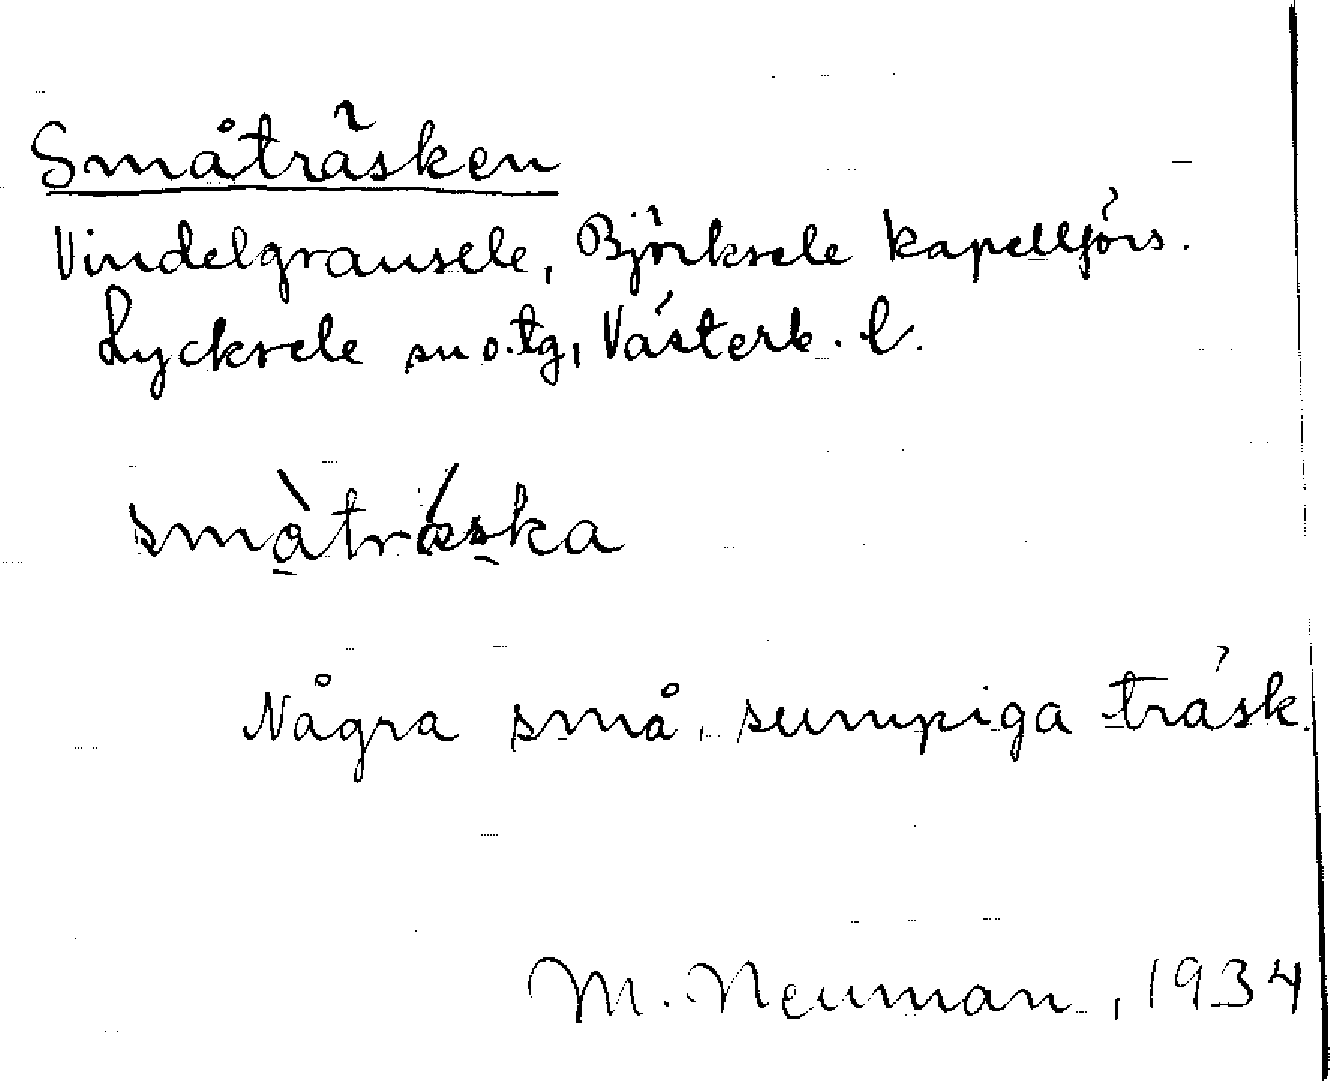 Småträsken
Vindelgransele, Björksele kapellförs.
Lycksele sn o. tg, Västerb. l.
småträska
Några små, sumpiga träsk.
M. Neuman, 1934